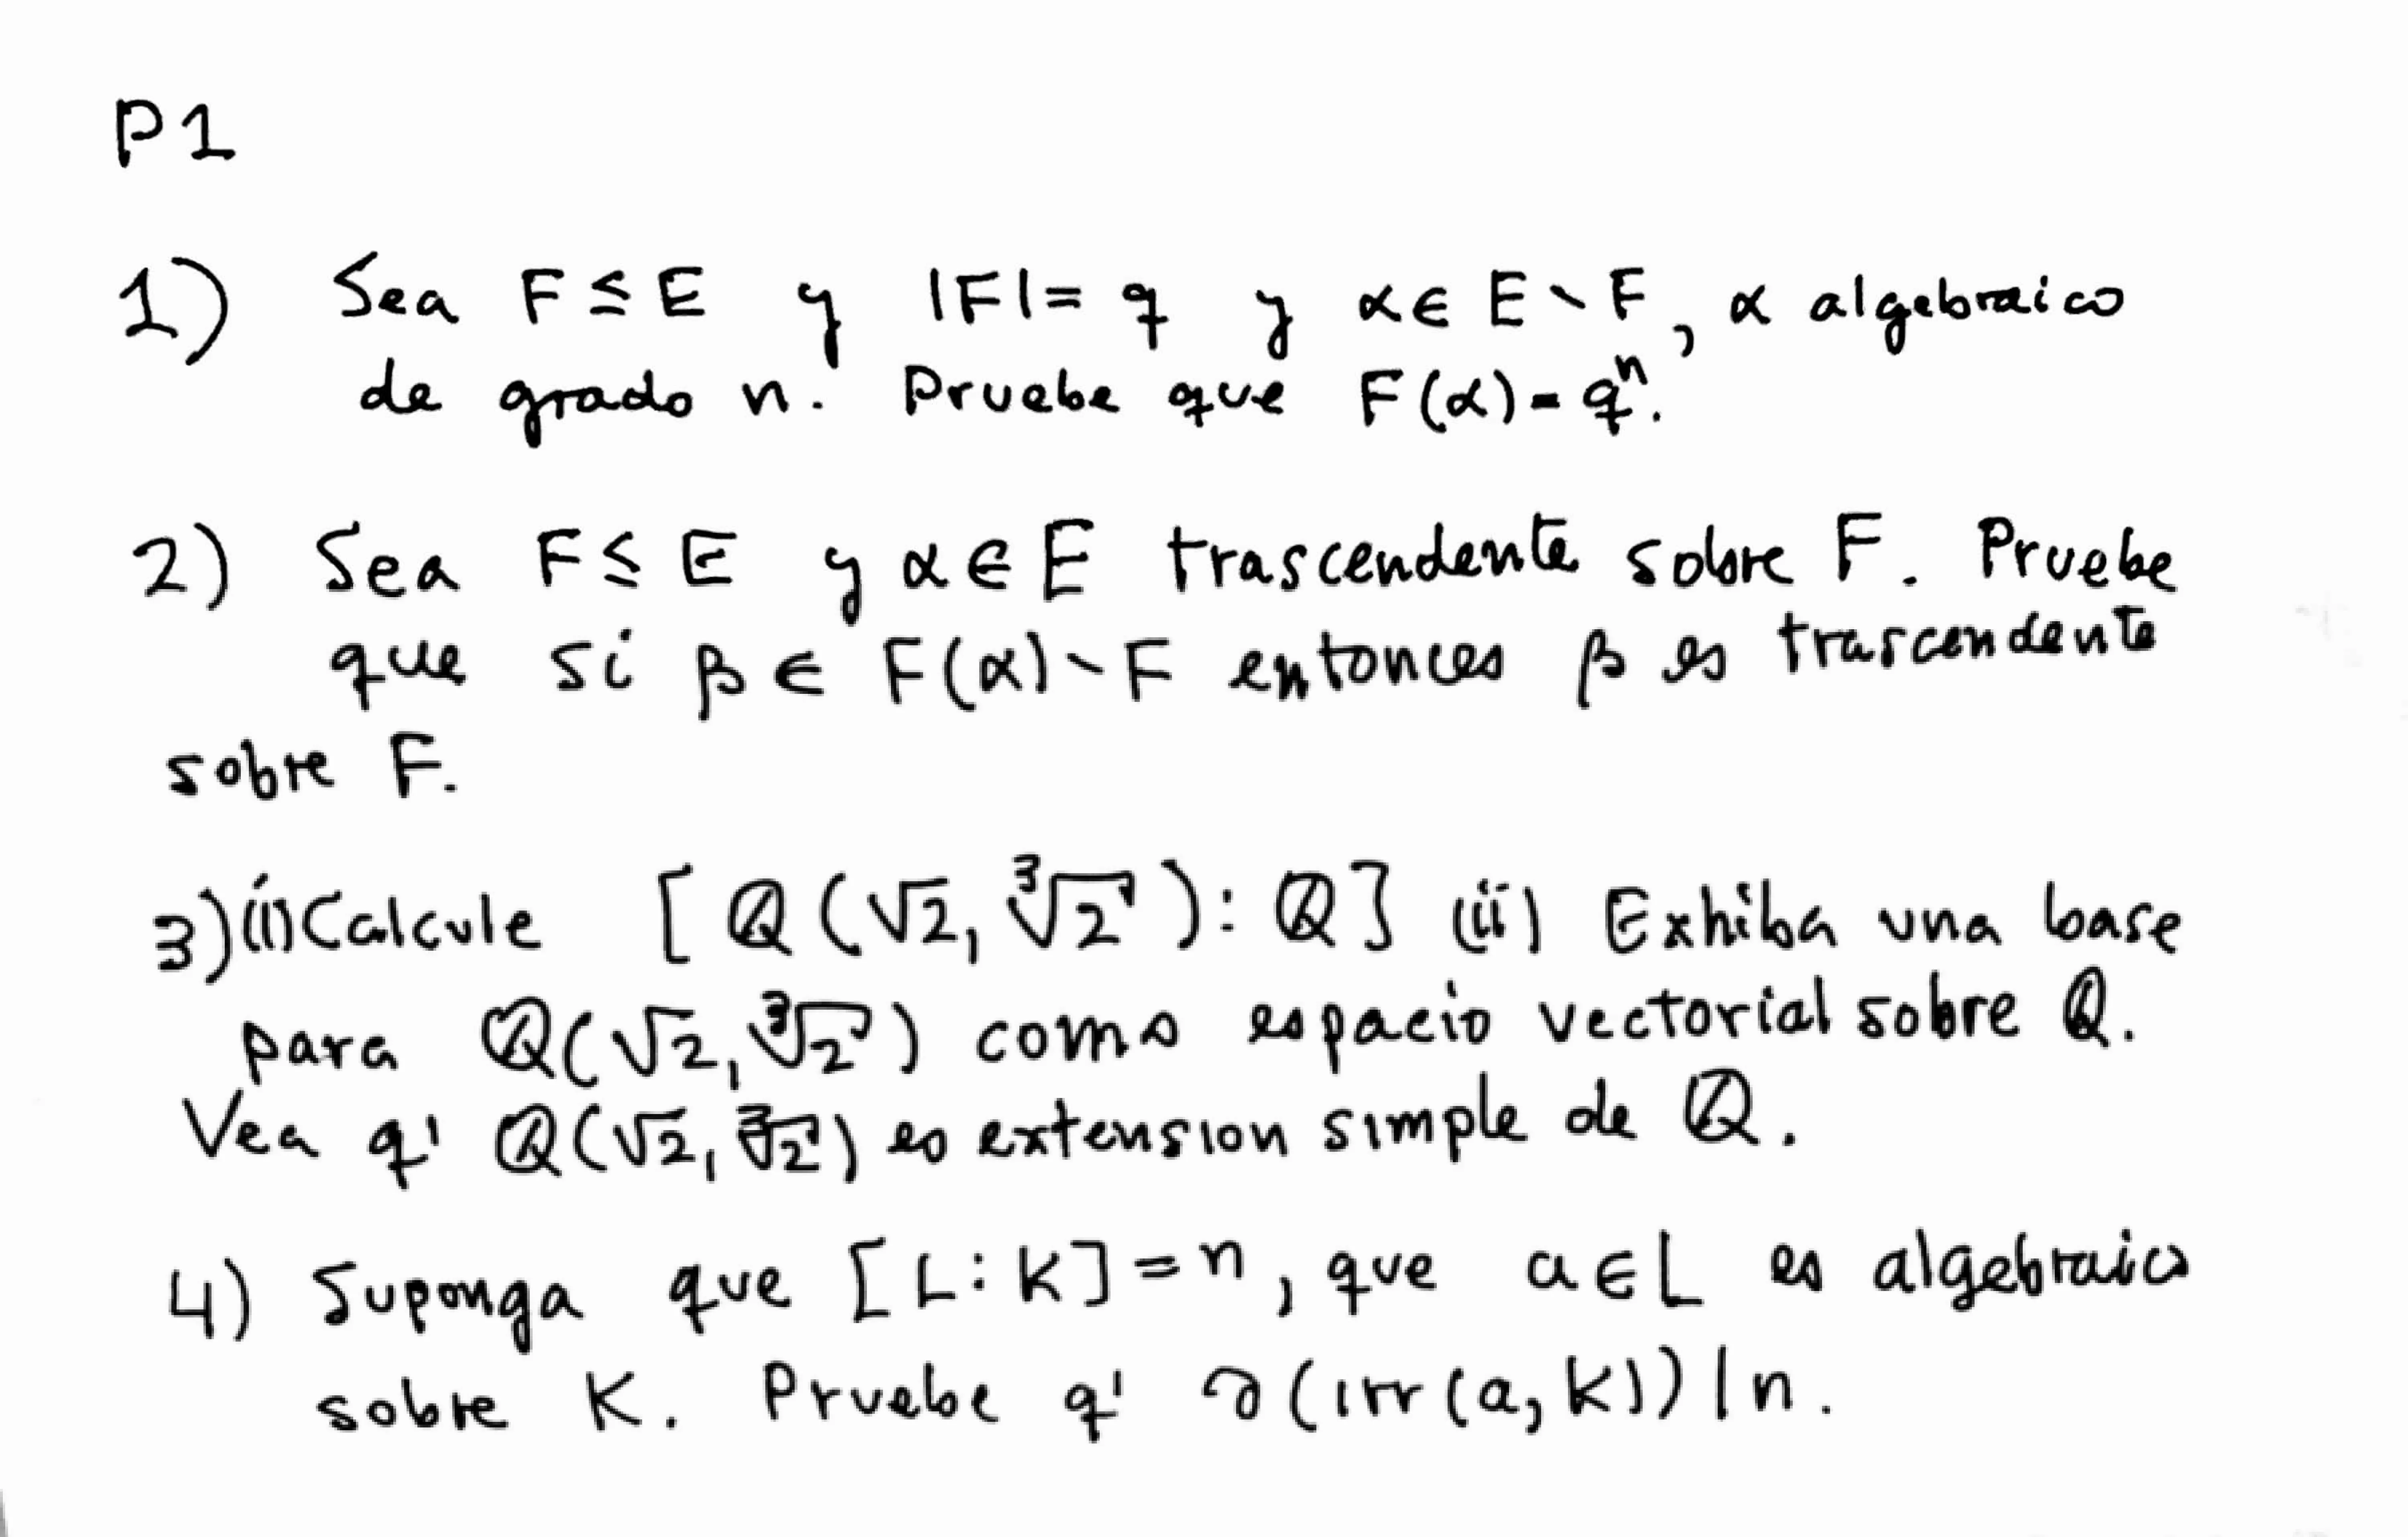 P1
1) Sea F ≤ E y |F| = q y α ∈ E \ F, α algebraico
de grado n. Pruebe que F(α) = qⁿ.
2) Sea F ≤ E y α ∈ E trascendente sobre F. Pruebe
que si β ∈ F(α) \ F entonces β es trascendente
sobre F.
3) (i) Calcule [Q(√2, ∛2) : Q] (ii) Exhiba una base
para Q(√2, ∛2) como espacio vectorial sobre Q.
Vea q' Q(√2, ∛2) es extension simple de Q.
4) Suponga que [L : K] = n, que a ∈ L es algebraico
sobre K. Pruebe q' ∂(irr(a, K)) | n.